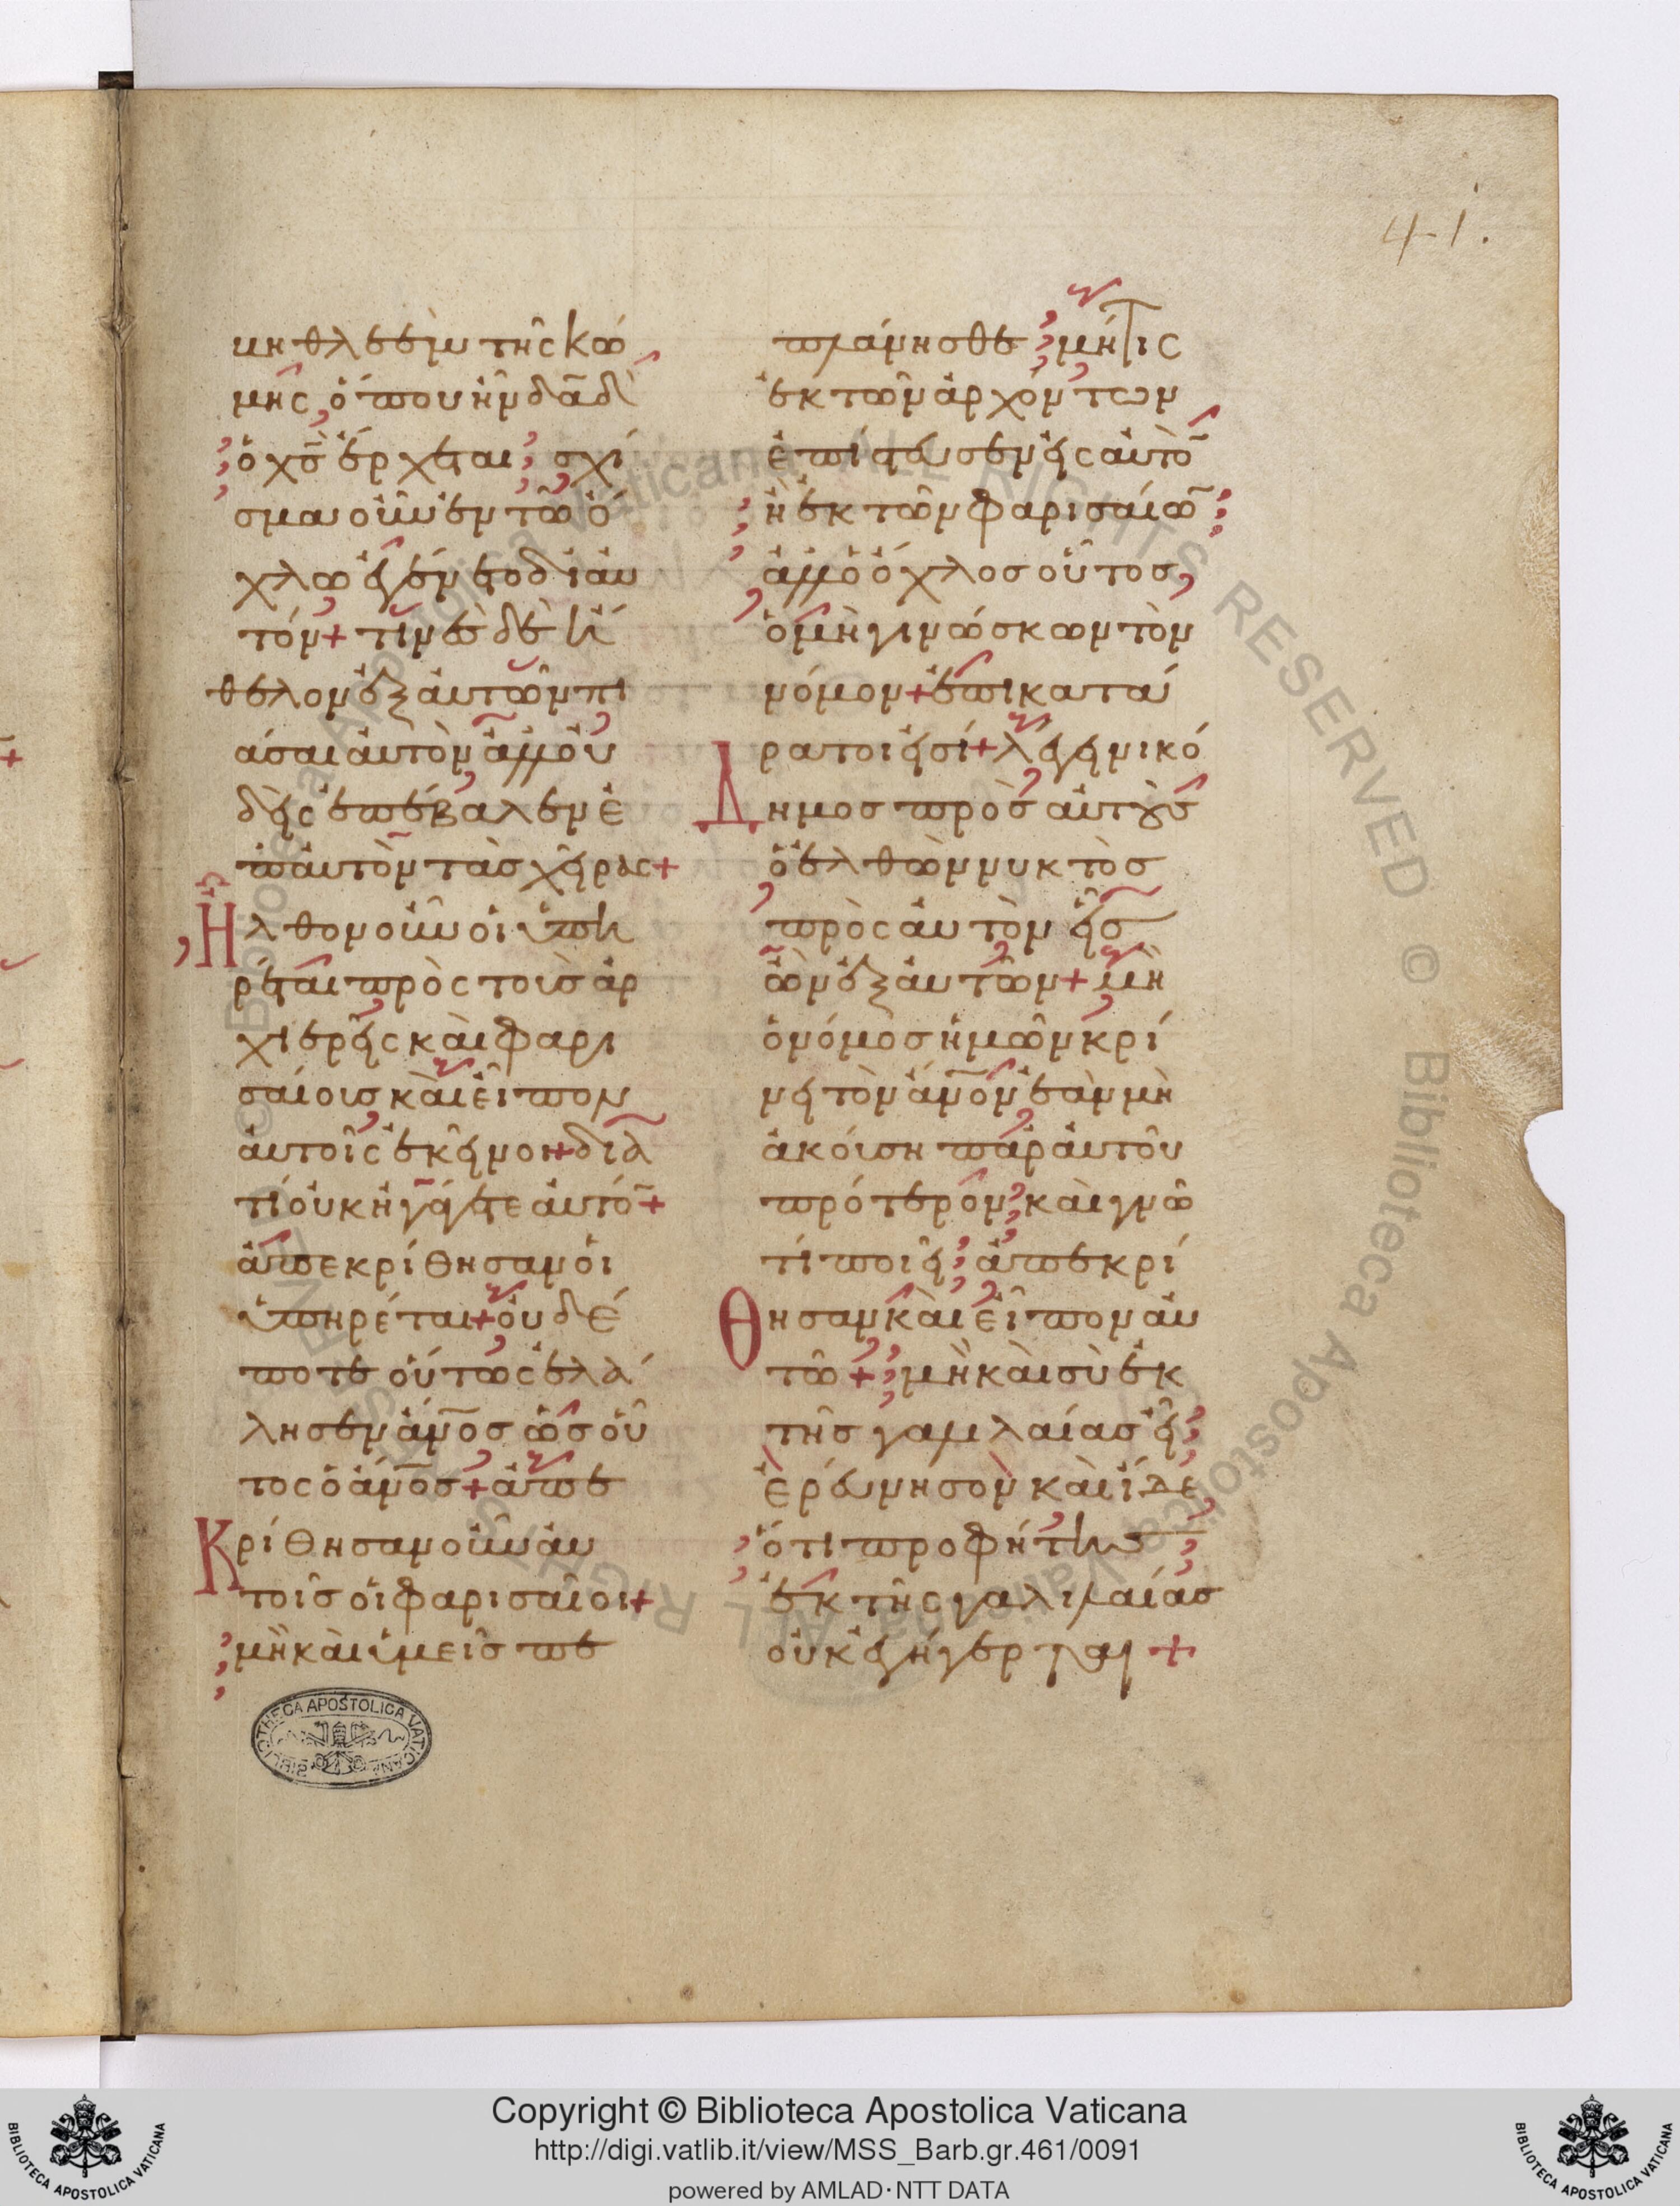 41.
μηθλεεὶμ τῆς κώ
μης ὅπου ἦν δᾶδ
ὁ χς̄ ἔρχεται; σχί
σμα οὖν ἐν τῶ ὄ
χλω ἐγένετο δι αὐ
τόν + τινὲς δὲ ἤ
θελον ἐξ αὐτῶν πι
άσαι αὐτὸν ἀλλ οὐ
δεὶς ἐπέβαλεν ἐ
π αὐτὸν τὰς χεῖρας +
Ἦλθον οὖν οἱ ὑπη
ρέται πρὸς τοὺς ἀρ
χιερεῖς καὶ φαρι
σαίους καὶ εἶπον
αὐτοῖς ἐκεῖνοι + διὰ
τί οὐκ ἠγάγετε αὐτό̄ +
ἀπεκρίθησαν οἱ
ὑπηρέται + οὐδέ
ποτε οὕτως ἐλά
λησεν ἀν̄ος ὡς οὗ
τος ὁ ἀν̄ος + ἀπε
Κρίθησαν οὖν αὐ
τοῖς οἱ φαρισαῖοι +
μὴ καὶ ὑμεῖς πε
πλάνησθε; μή τις
ἐκ τῶν ἀρχόντων
ἐπίστευσεν εἰς αὐτὸ̄
ἢ ἐκ τῶν φαρισαίω̄;
ἀλλ ὁ ὄχλος οὗτος,
ὁ μὴ γινώσκων τὸν
νόμον + ἐπικατά
ρατοι εἰσί + λέγει νικό
Δημος πρὸς αὐτοὺς
ὁ ἐλθὼν νυκτὸς
πρὸς αὐτὸν εἷς
ὢν ἐξ αὐτῶν + μὴ
ὁ νόμος ἡμῶν κρί
νει τὸν ἀν̄ον ἐὰν μὴ
ἀκούση παρ αὐτοῦ
πρότερον; καὶ γνῶ
τί ποιεῖ; ἀπεκρί
Θησαν καὶ εἶπον αὐ
τῶ + μὴ καὶ σὺ ἐκ
τῆς γαλιλαίας εἶ;
ἐρεύνησον καὶ ἴδε
ὅτι προφήτης
ἐκ τῆς γαλιλαίας
οὐκ ἐγήγερται +
BIBLIOTHECA APOSTOLICA VATICANA
Copyright © Biblioteca Apostolica Vaticana
http://digi.vatlib.it/view/MSS_Barb.gr.461/0091
powered by AMLAD·NTT DATA
BIBLIOTECA APOSTOLICA VATICANA
BIBLIOTECA APOSTOLICA VATICANA
© Biblioteca Apostolica Vaticana ALL RIGHTS RESERVED © Biblioteca Apostolica Vaticana ALL RIGHTS RESERVED